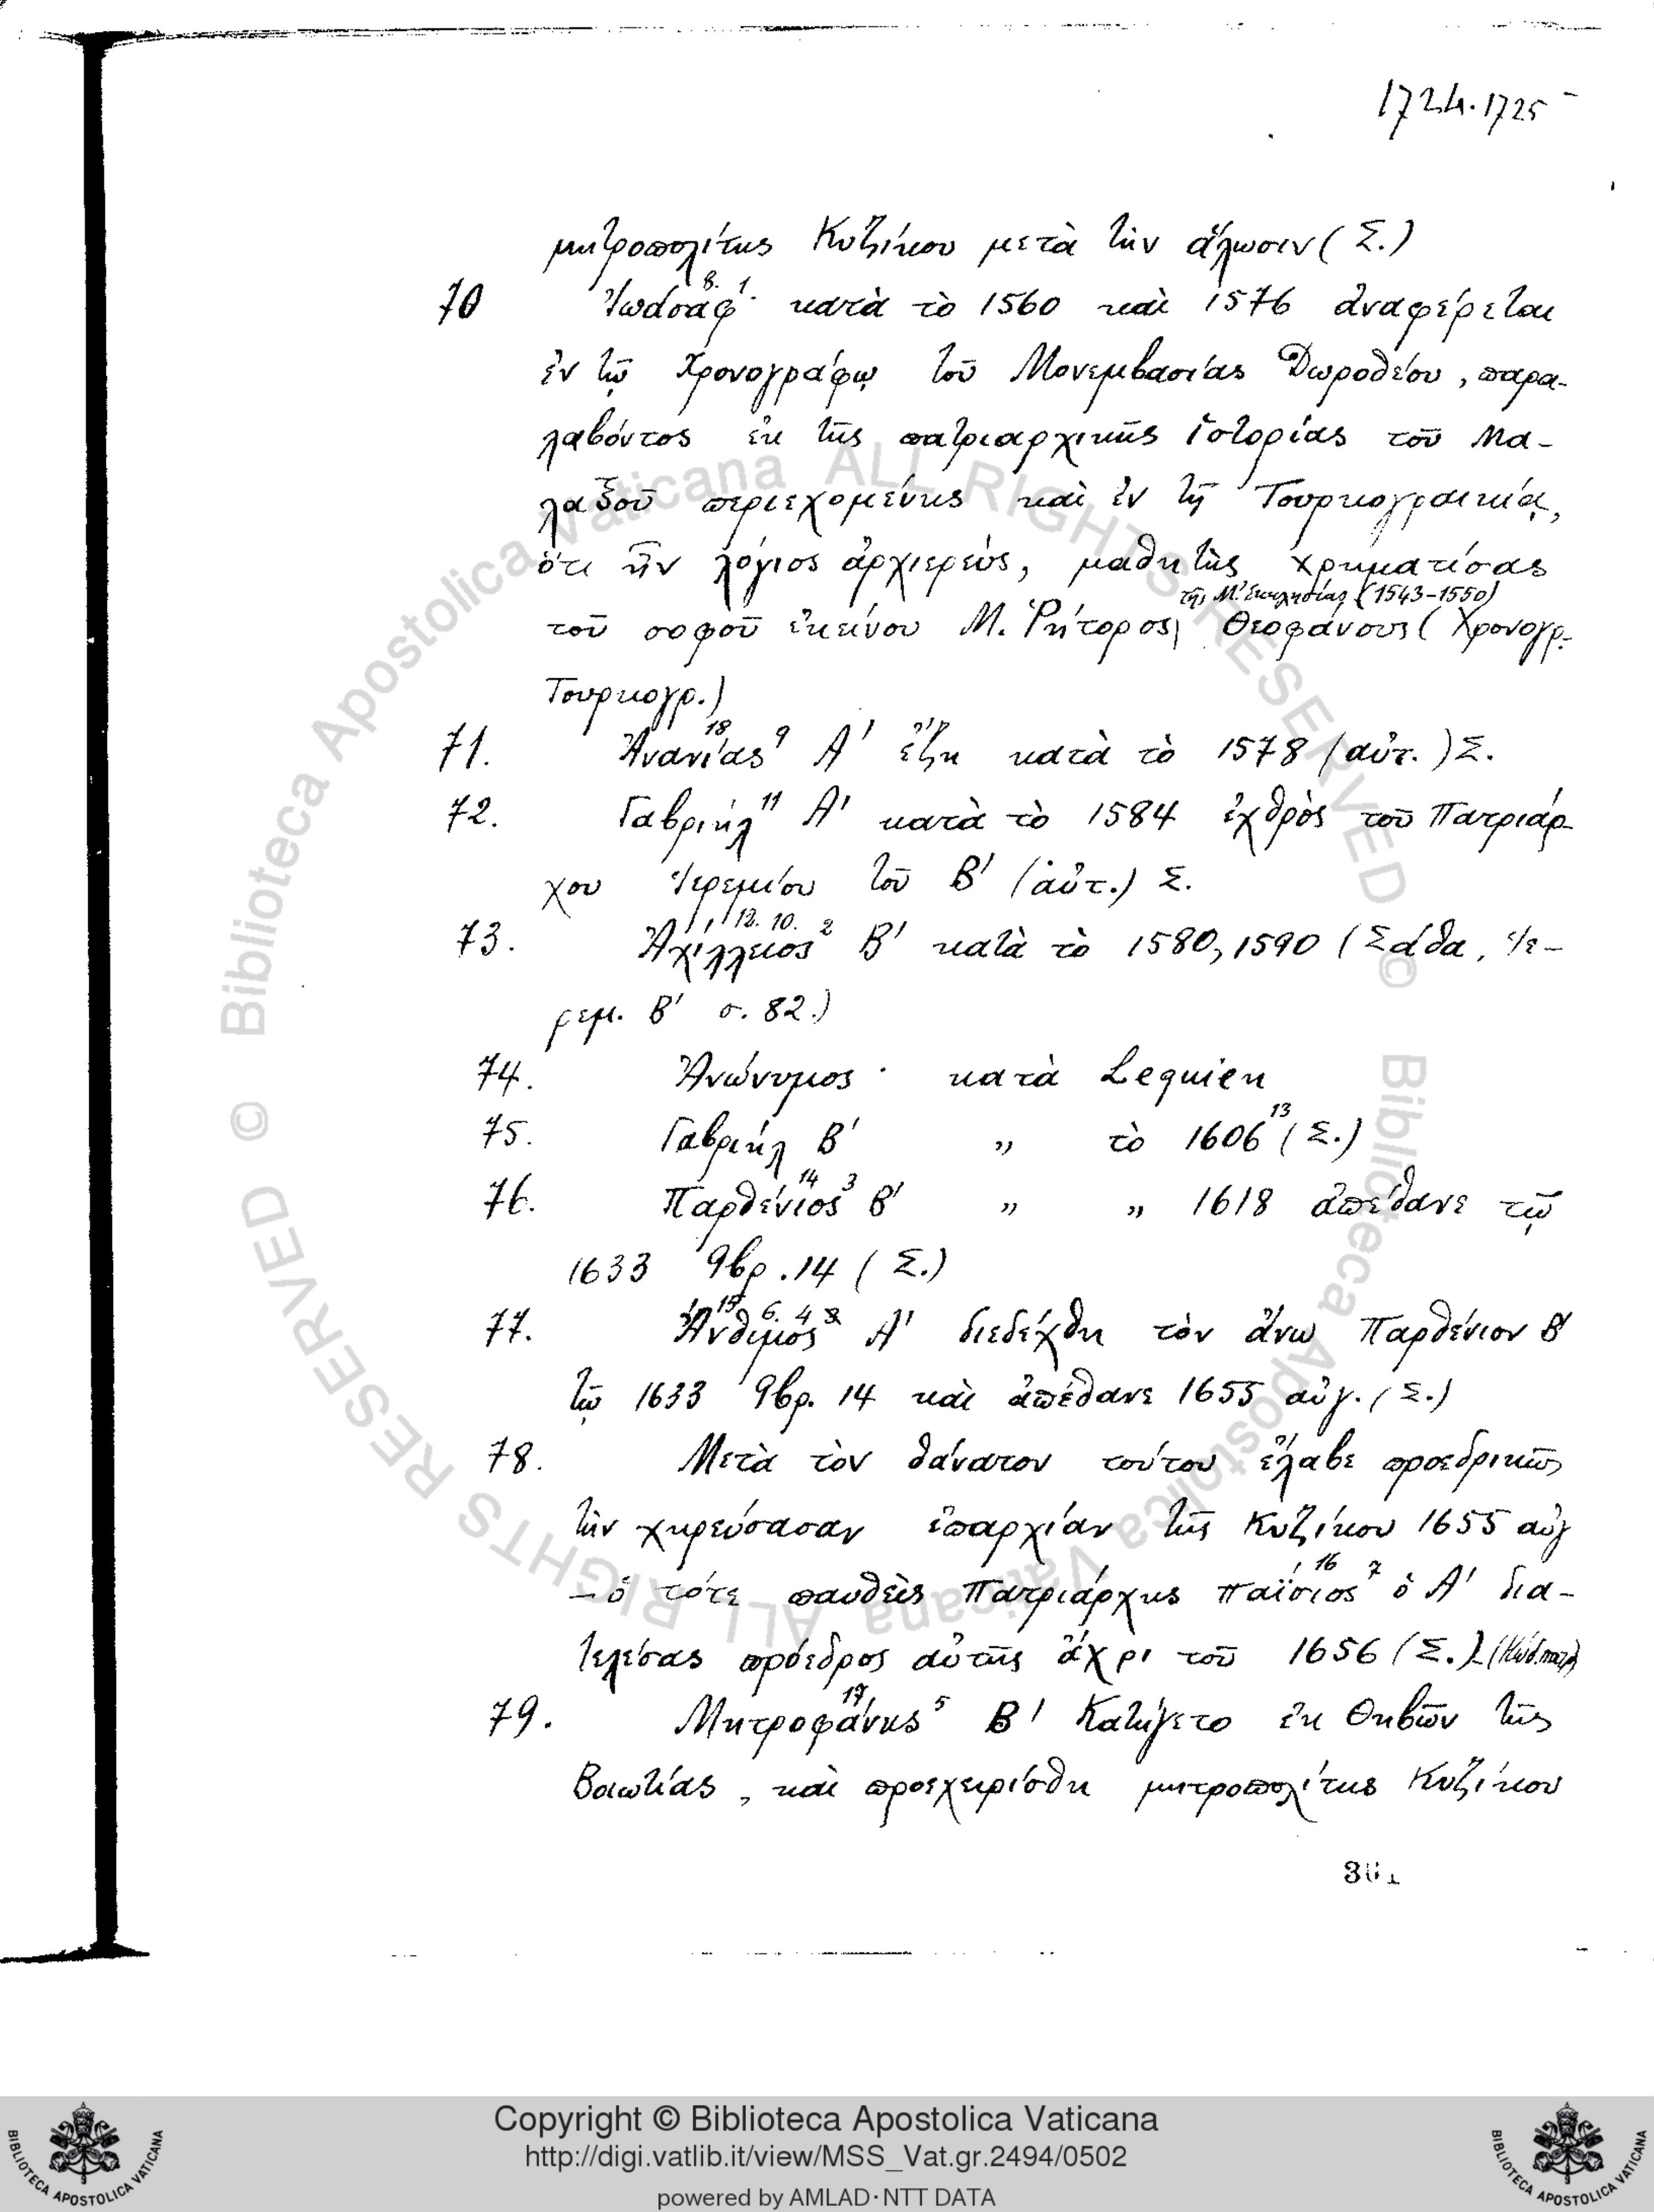 1724.1725
μητροπολίτης Κυζίκου μετὰ τὴν ἅλωσιν (Σ.)
70 Ἰωάσαφ 8. 1. κατὰ τὸ 1560 καὶ 1576 ἀναφέρεται
ἐν τῷ Χρονογράφῳ τοῦ Μονεμβασίας Δωροθέου, παρα-
λαβόντος ἐκ τῆς πατριαρχικῆς ἱστορίας τοῦ Μα-
λαξοῦ περιεχομένης καὶ ἐν τῇ Τουρκογραικίᾳ,
ὅτι ἦν λόγιος ἀρχιερεύς, μαθητὴς χρηματίσας
τῆς Μ. Ἐκκλησίας (1543-1550)
τοῦ σοφοῦ ἐκείνου Μ. Ῥήτορος Θεοφάνους (Χρονογρ.
Τουρκογρ.)
71. Ἀνανίας 18 9 Α' ἔζη κατὰ τὸ 1578 (αὐτ.) Σ.
72. Γαβριήλ 11 Α' κατὰ τὸ 1584 ἐχθρὸς τοῦ Πατριάρ-
χου Ἱερεμίου τοῦ Β' (αὐτ.) Σ.
73. Ἀχίλλειος 12. 10. 2 Β' κατὰ τὸ 1580, 1590 (Σάθα, Ἱε-
ρεμ. Β' σ. 82.)
74. Ἀνώνυμος · κατὰ Lequien
75. Γαβριήλ Β' „ τὸ 1606 13 (Σ.)
76. Παρθένιος 14 3 Β' „ „ 1618 ἀπέθανε τῷ
1633 9βρ. 14 (Σ.)
77. Ἄνθιμος 15 6. 4 8 Α' διεδέχθη τὸν ἄνω Παρθένιον Β'
τῷ 1633 9βρ. 14 καὶ ἀπέθανε 1655 αὐγ. (Σ.)
78. Μετὰ τὸν θάνατον τούτου ἔλαβε προεδρικῶς
τὴν χηρεύσασαν ἐπαρχίαν τῆς Κυζίκου 1655 αὐγ
– ὁ τότε παυθεὶς Πατριάρχης Παΐσιος 16 7 ὁ Α' δια-
τελέσας πρόεδρος αὐτῆς ἄχρι τοῦ 1656 (Σ.) (Κώδ. πατρ.)
79. Μητροφάνης 17 5 Β' Κατήγετο ἐκ Θηβῶν τῆς
Βοιωτίας, καὶ προεχειρίσθη μητροπολίτης Κυζίκου
301
© Biblioteca Apostolica Vaticana ALL RIGHTS RESERVED © Biblioteca Apostolica Vaticana ALL RIGHTS RESERVED
Copyright © Biblioteca Apostolica Vaticana
http://digi.vatlib.it/view/MSS_Vat.gr.2494/0502
powered by AMLAD·NTT DATA
BIBLIOTECA APOSTOLICA VATICANA
BIBLIOTECA APOSTOLICA VATICANA